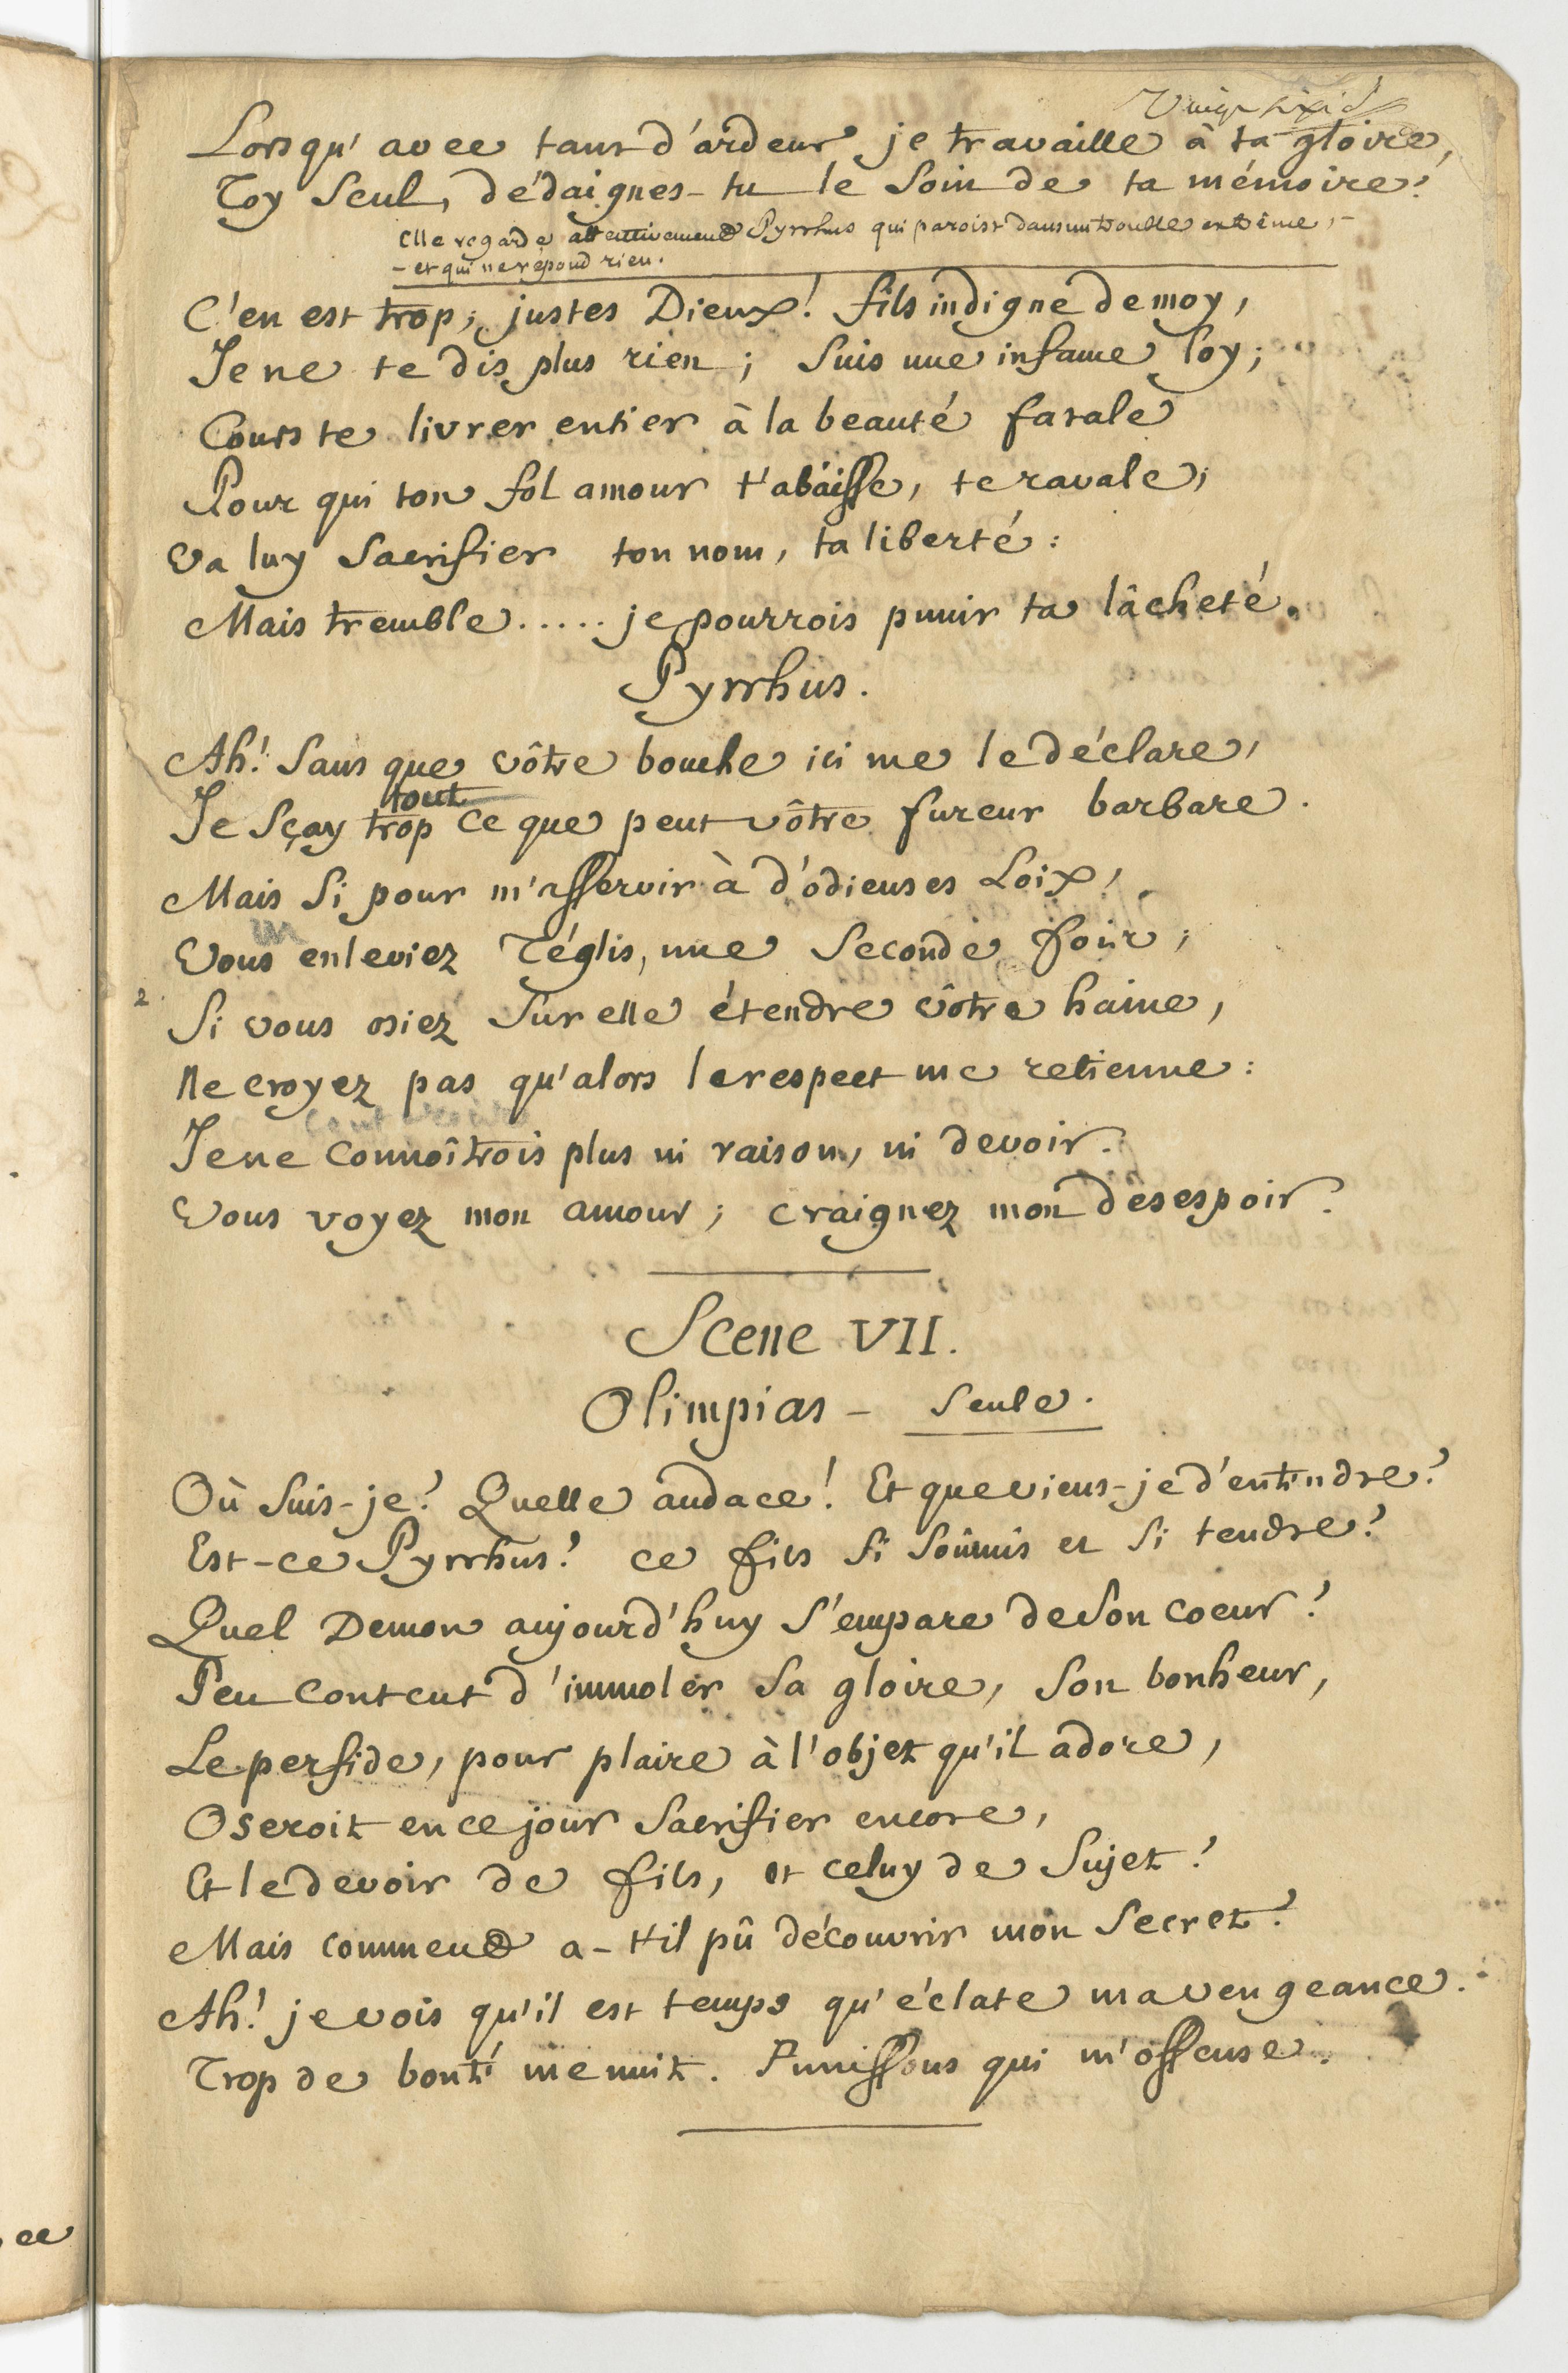 Lorsqu' avec tant d'ardeur je travaille à ta gloire,
Toy seul, dédaignes-tu le soin de ta mémoire?
Elle regarde attentivement Pyrrhus qui paroist dans un trouble extrême, -
- et qui ne répond rien.
C'en est trop, justes Dieux! fils indigne de moy,
Je ne te dis plus rien; suis une infame loy;
Cours te livrer entier à la beauté fatale
Pour qui ton fol amour t'abaisse, te ravale;
Va luy sacrifier ton nom, ta liberté:
Mais tremble..... je pourrois punir ta lâcheté.
Pyrrhus.
Ah! sans que vôtre bouche ici me le déclare,
tout
Je sçay trop ce que peut vôtre fureur barbare.
Mais si pour m'asservir à d'odieuses Loix,
Vous enleviez Téglis, une seconde fois;
2. Si vous osiez sur elle étendre vôtre haine,
Ne croyez pas qu'alors le respect me retienne:
Je ne connoîtrois plus ni raison, ni devoir.
Vous voyez mon amour; craignez mon desespoir.
Scene VII.
Olimpias - seule.
Où suis-je? Quelle audace! Et que viens-je d'entendre?
Est-ce Pyrrhus? ce fils si soûmis et si tendre?
Quel Demon aujourd'huy s'empare de son coeur?
Peu content d'immoler sa gloire, son bonheur,
Le perfide, pour plaire à l'objet qu'il adore,
Oseroit en ce jour sacrifier encore,
Et le devoir de fils, et celuy de sujet!
Mais comment a-t-il pû découvrir mon secret?
Ah! je vois qu'il est temps qu'éclate ma vengeance.
Trop de bonté me nuit. Punissons qui m'offense.
ce